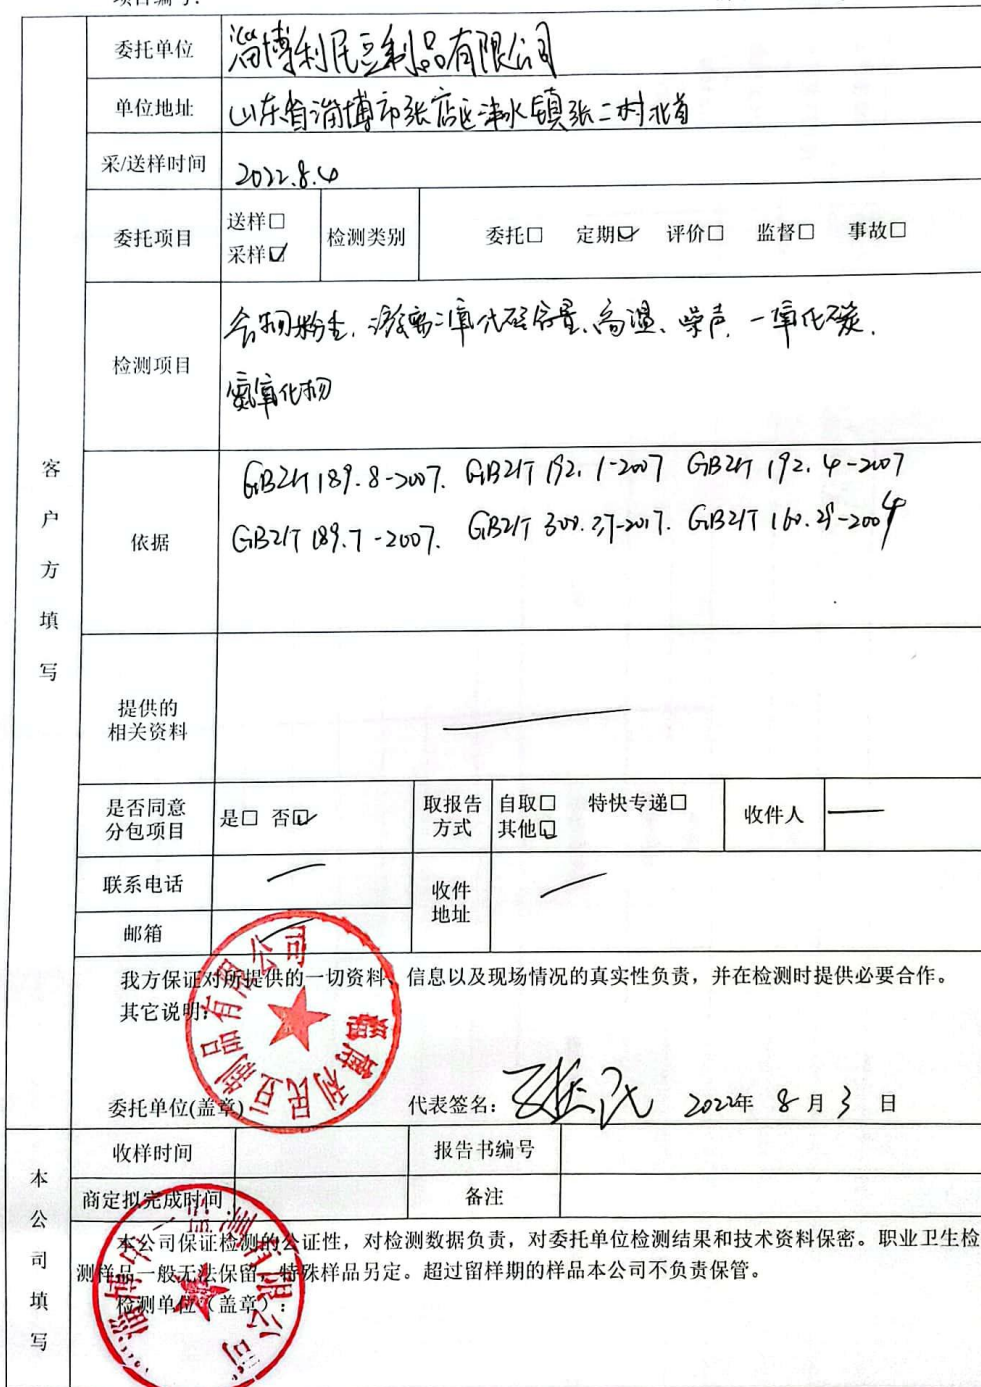 项目编号:
客户方填写
委托单位 淄博利民豆制品有限公司
单位地址 山东省淄博市张店区沣水镇张二村北首
采/送样时间 2022.8.4
委托项目 送样□ 采样☑ 检测类别 委托□ 定期☑ 评价□ 监督□ 事故□
检测项目 谷物粉尘、游离二氧化硅含量、高温、噪声、一氧化碳、
氮氧化物
依据 GBZ/T 189.8-2007. GBZ/T 192.1-2007 GBZ/T 192.4-2007
GBZ/T 189.7-2007. GBZ/T 300.37-2017. GBZ/T 160.29-2004
提供的
相关资料 —
是否同意
分包项目 是□ 否☑ 取报告
方式 自取□ 特快专递□
其他☑ 收件人 —
联系电话 — 收件
地址 —
邮箱 —
我方保证对所提供的一切资料、信息以及现场情况的真实性负责，并在检测时提供必要合作。
其它说明:
淄博利民豆制品有限公司
委托单位(盖章): 代表签名: 2022年 8月3日
本公司填写
收样时间 报告书编号
商定拟完成时间 备注
本公司保证检测的公证性，对检测数据负责，对委托单位检测结果和技术资料保密。职业卫生检
测样品一般无法保留，特殊样品另定。超过留样期的样品本公司不负责保管。
检测单位（盖章）: